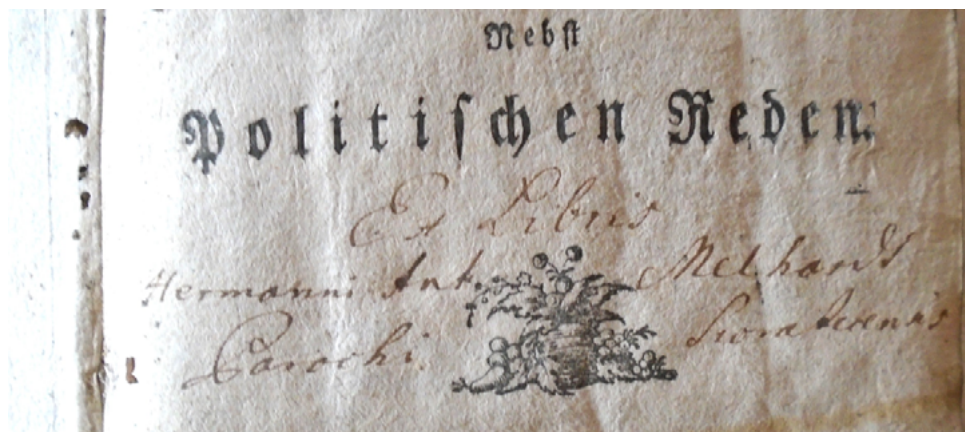 Nebst
Politischen Reden.
Ex Libris
Hermanni Ant. Melhardt
Parochi